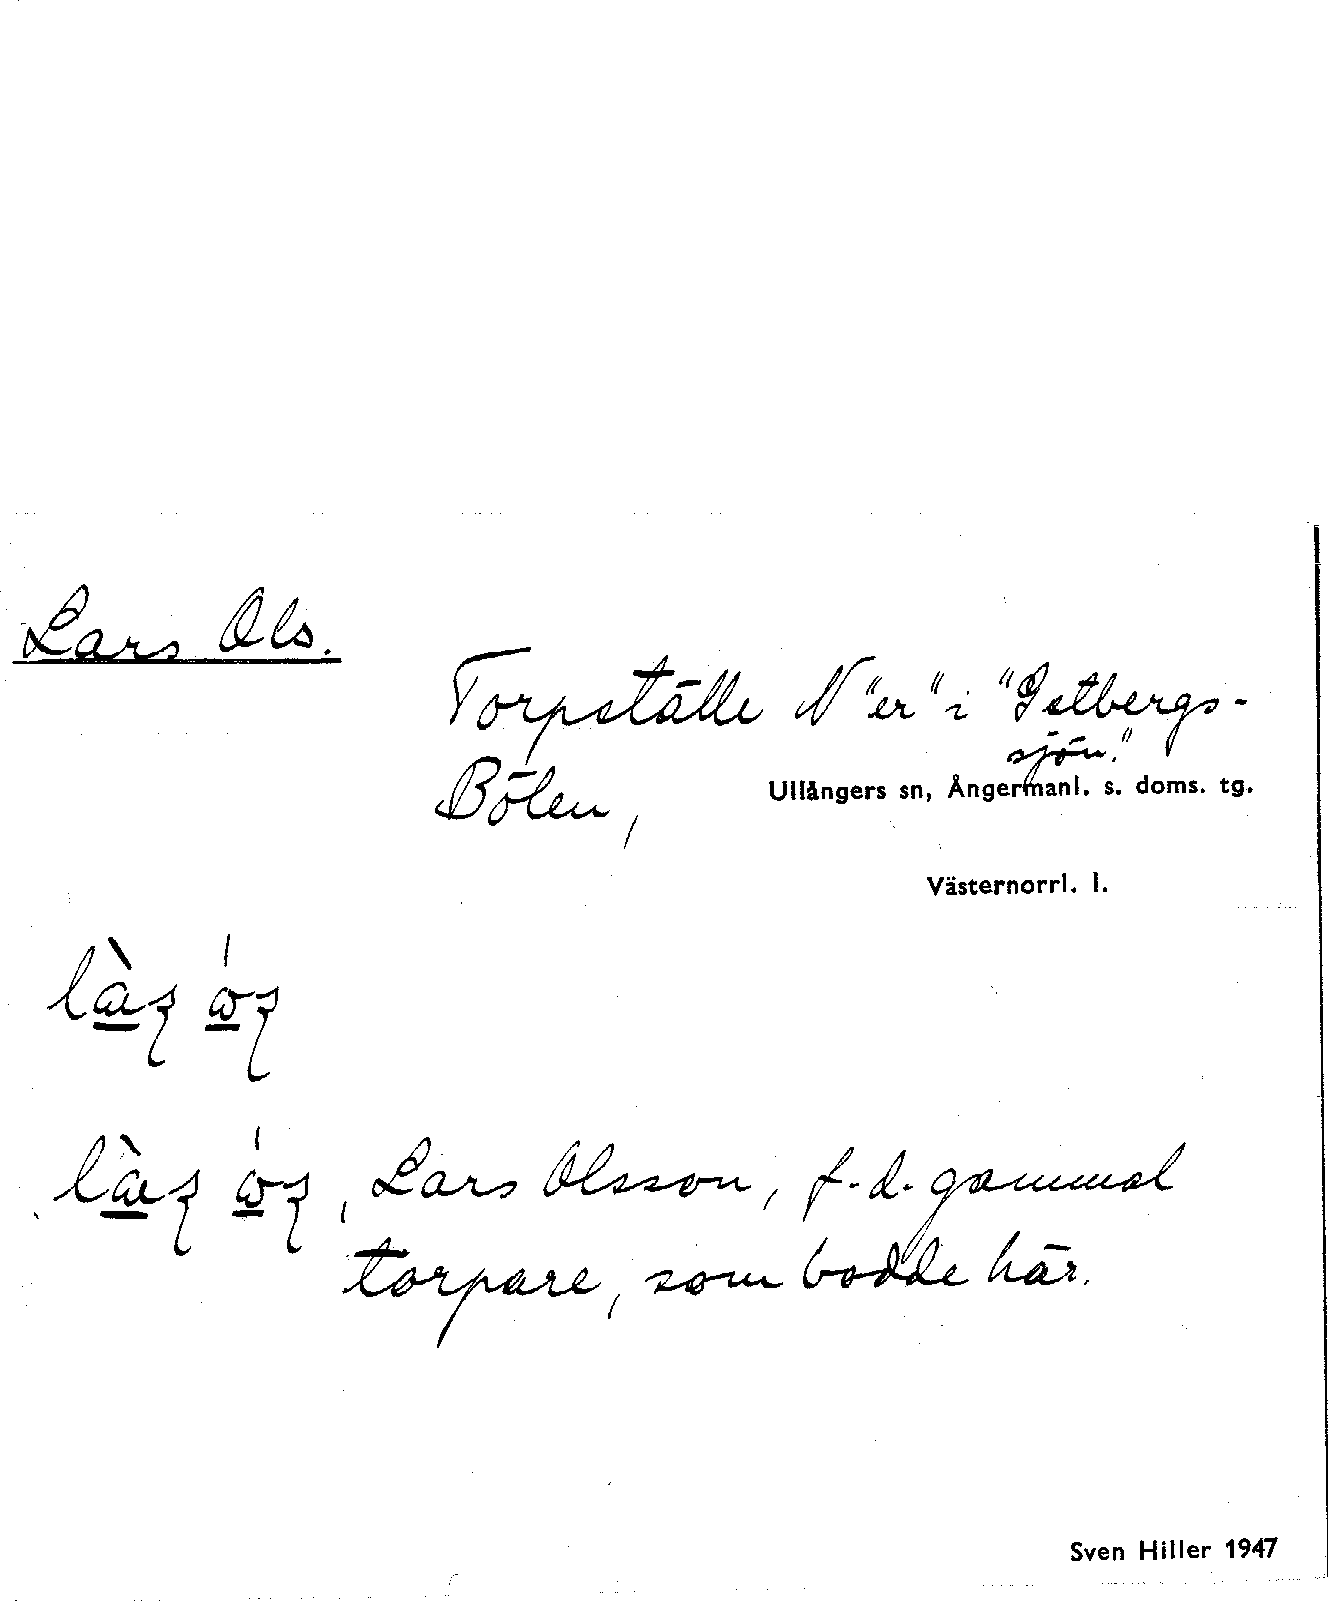 Lars Ols.
Torpställe N "er" i "Getbergs-
sjön."
Bölen,
Ullångers sn, Ångermanl. s. doms. tg.
Västernorrl. l.
Lars Olsson, f.d. gammal
torpare, som bodde här.
Sven Hiller 1947